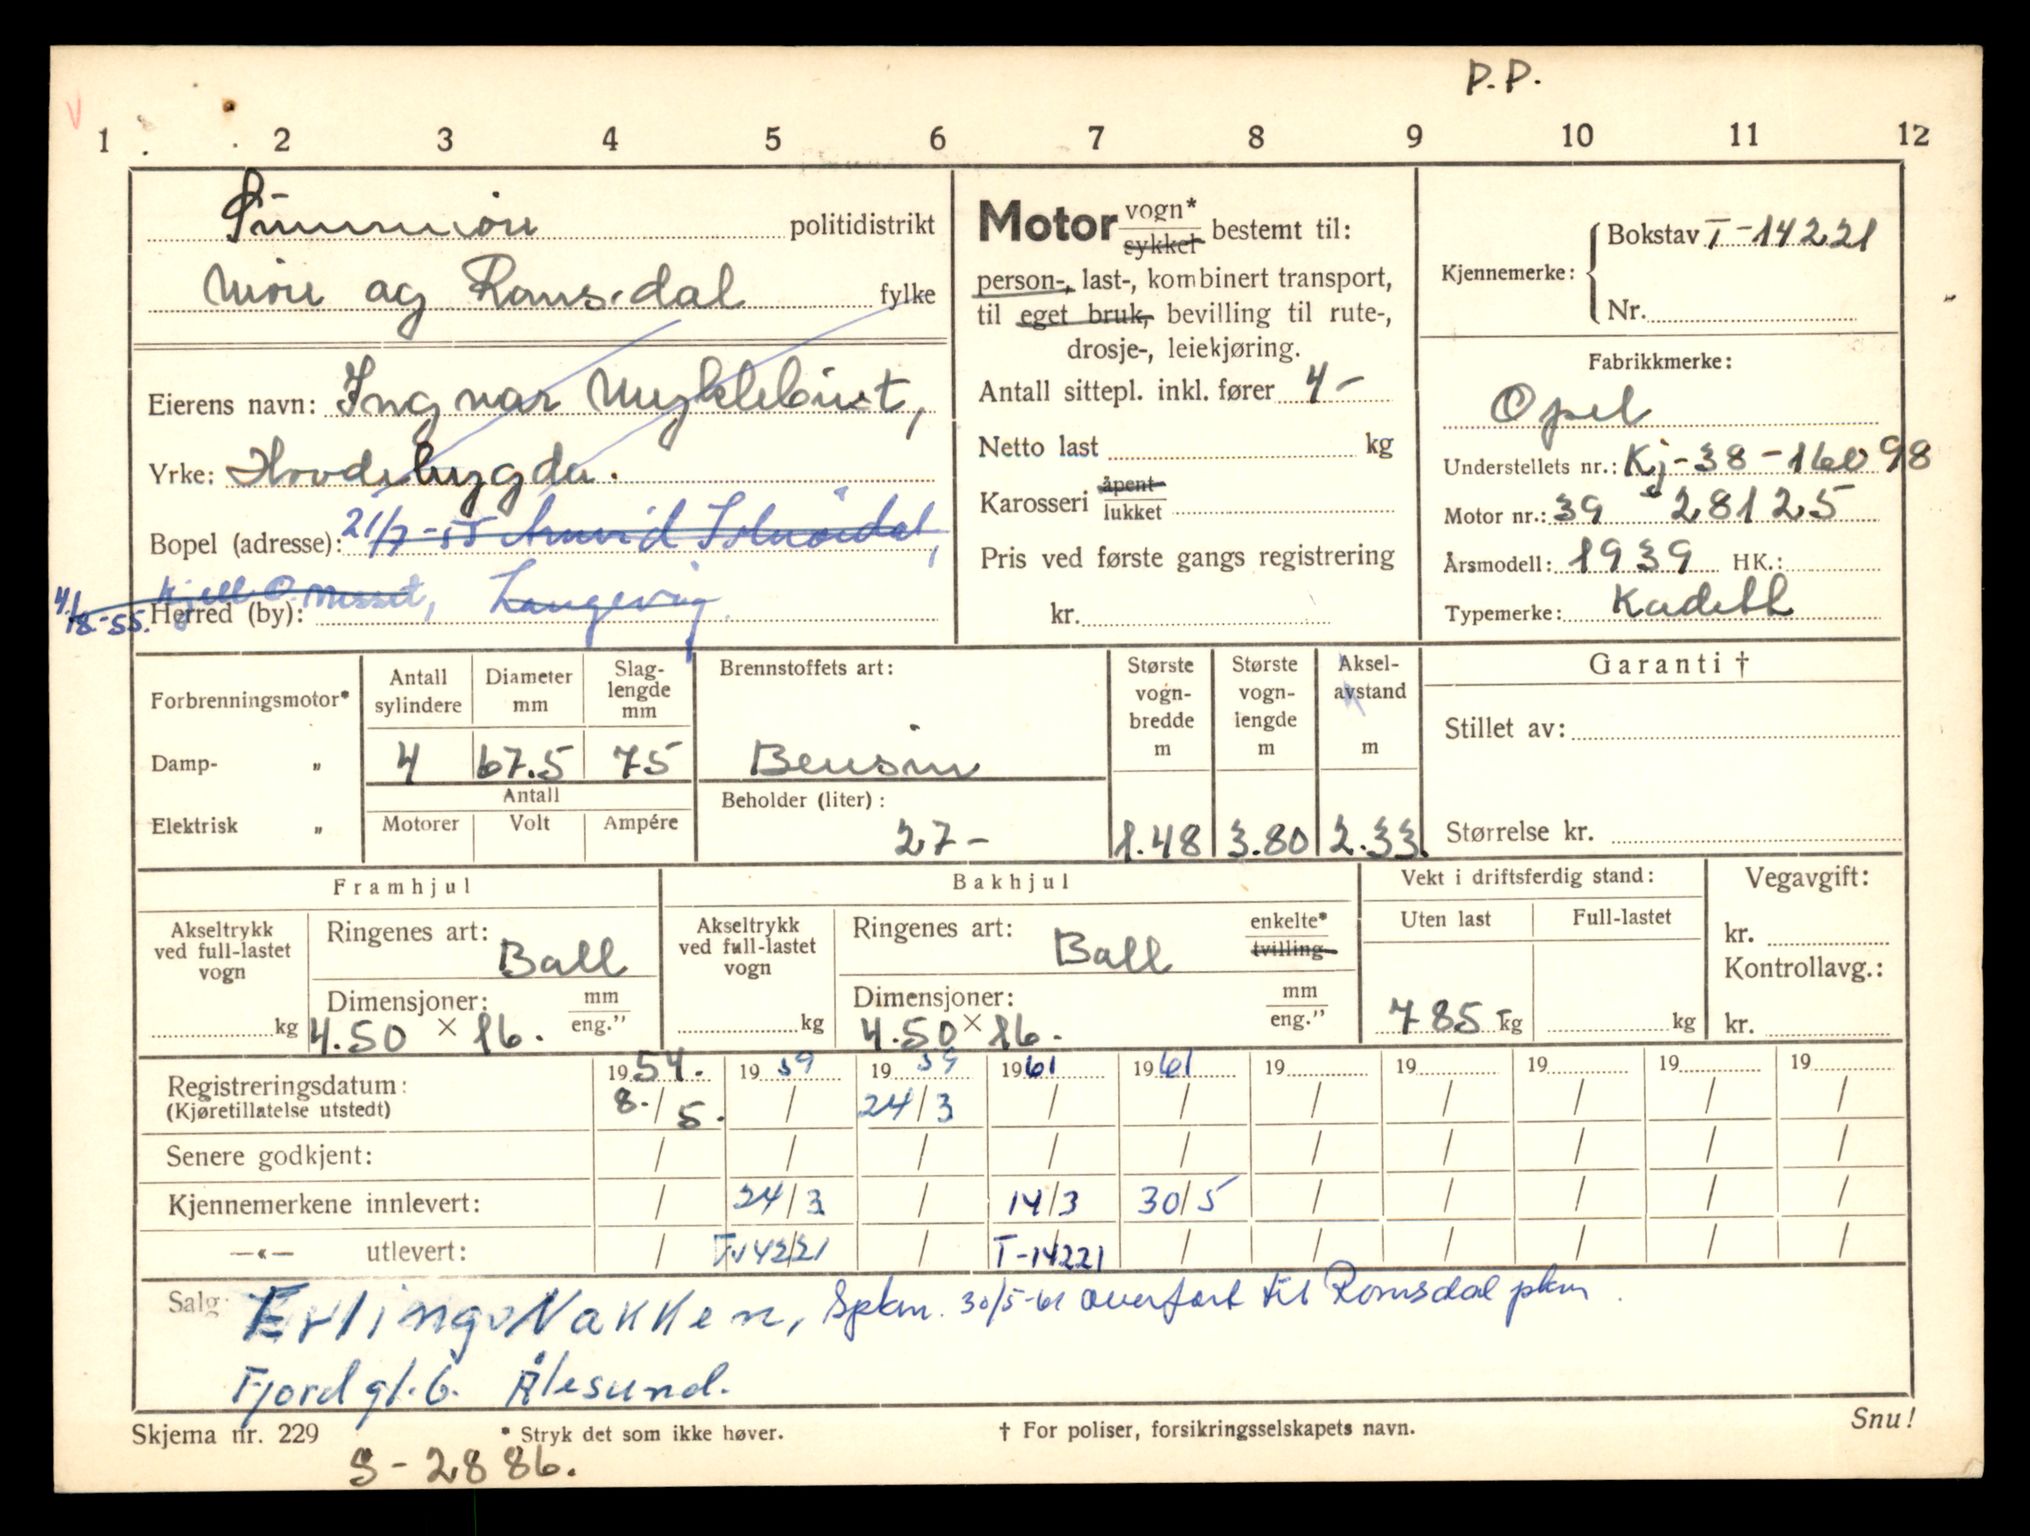 P.P.
1 2 3 4 5 6 7 8 9 10 11 12
Sunnmøre politidistrikt
Møre og Romsdal fylke
Eierens navn: Ingvar Myklebust,
Yrke: Hovdebygda.
Bopel (adresse): 21/7-55 Arnvid Solnørdal,
4/8-55. Kjell O. Messet, Langevåg
Herred (by):
Motor vogn* sykkel bestemt til:
person-, last-, kombinert transport,
til eget bruk, bevilling til rute-,
drosje-, leiekjøring.
Antall sittepl. inkl. fører 4-
Netto last kg
Karosseri åpent lukket
Pris ved første gangs registrering
kr.
Kjennemerke: Bokstav T-14221
Nr.
Fabrikkmerke:
Opel
Understellets nr.: Kj-38-16098
Motor nr.: 39 - 28125
Årsmodell: 1939 HK.:
Typemerke: Kadett
Forbrenningsmotor*
Damp- „
Elektrisk „
Antall sylindere Diameter mm Slag-lengde mm
4 67.5 75
Antall
Motorer Volt Ampére
Brennstoffets art:
Bensin
Beholder (liter):
27-
Største vogn-bredde m
1.48
Største vogn-lengde m
3.80
Aksel-avstand m
2.33.
Garanti †
Stillet av:
Størrelse kr.
Framhjul
Akseltrykk ved full-lastet vogn
kg
Ringenes art: Ball
Dimensjoner: mm eng."
4.50 × 16.
Bakhjul
Akseltrykk ved full-lastet vogn
kg
Ringenes art: Ball enkelte* tvilling
Dimensjoner: mm eng."
4.50 × 16.
Vekt i driftsferdig stand:
Uten last Full-lastet
785 kg kg
Vegavgift:
kr.
Kontrollavg.:
kr.
Registreringsdatum: 1954. 1959 1959 1961 1961 19 19 19 19 19
(Kjøretillatelse utstedt) 8./5. / 24/3 / / / / / / /
Senere godkjent: / / / / / / / / / /
Kjennemerkene innlevert: / 24/3 / 14/3 30/5 / / / / /
—«— utlevert: / T-14221 / T-14221 / / / / / /
Salg: Erling Nakken, Spkm. 30/5-61 overført til Romsdal pkm.
Fjordgt. 6. Ålesund.
Skjema nr. 229 * Stryk det som ikke høver. † For poliser, forsikringsselskapets navn. Snu!
S-2886.